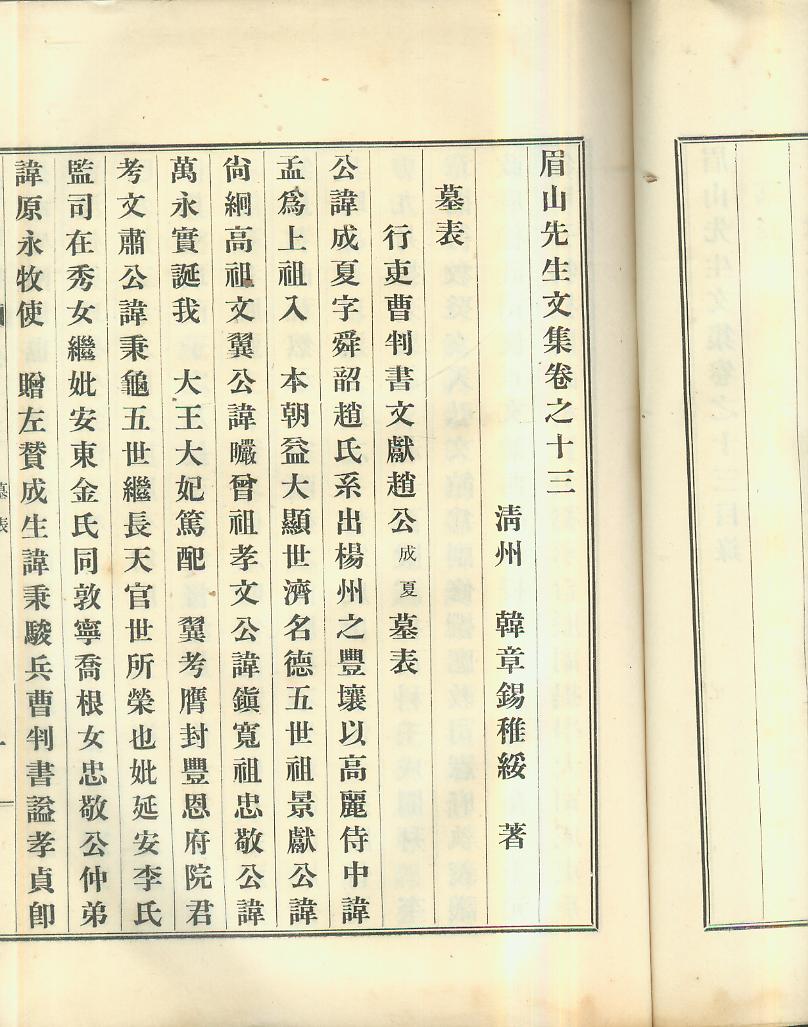 眉山先生文集卷之十三
淸州　韓章錫稚綏　著
墓表
行吏曹判書文獻趙公成夏墓表
公諱成夏字舜韶趙氏系出楊州之豐壤以高麗侍中諱
孟爲上祖入　本朝益大顯世濟名德五世祖景獻公諱
尙絅高祖文翼公諱曮曾祖孝文公諱鎭寬祖忠敬公諱
萬永實誕我　大王大妃篤配　翼考膺封豐恩府院君
考文肅公諱秉龜五世繼長天官世所榮也妣延安李氏
監司在秀女繼妣安東金氏同敦寧喬根女忠敬公仲弟
諱原永牧使　贈左贊成生諱秉駿兵曹判書謚孝貞卽
墓表
一